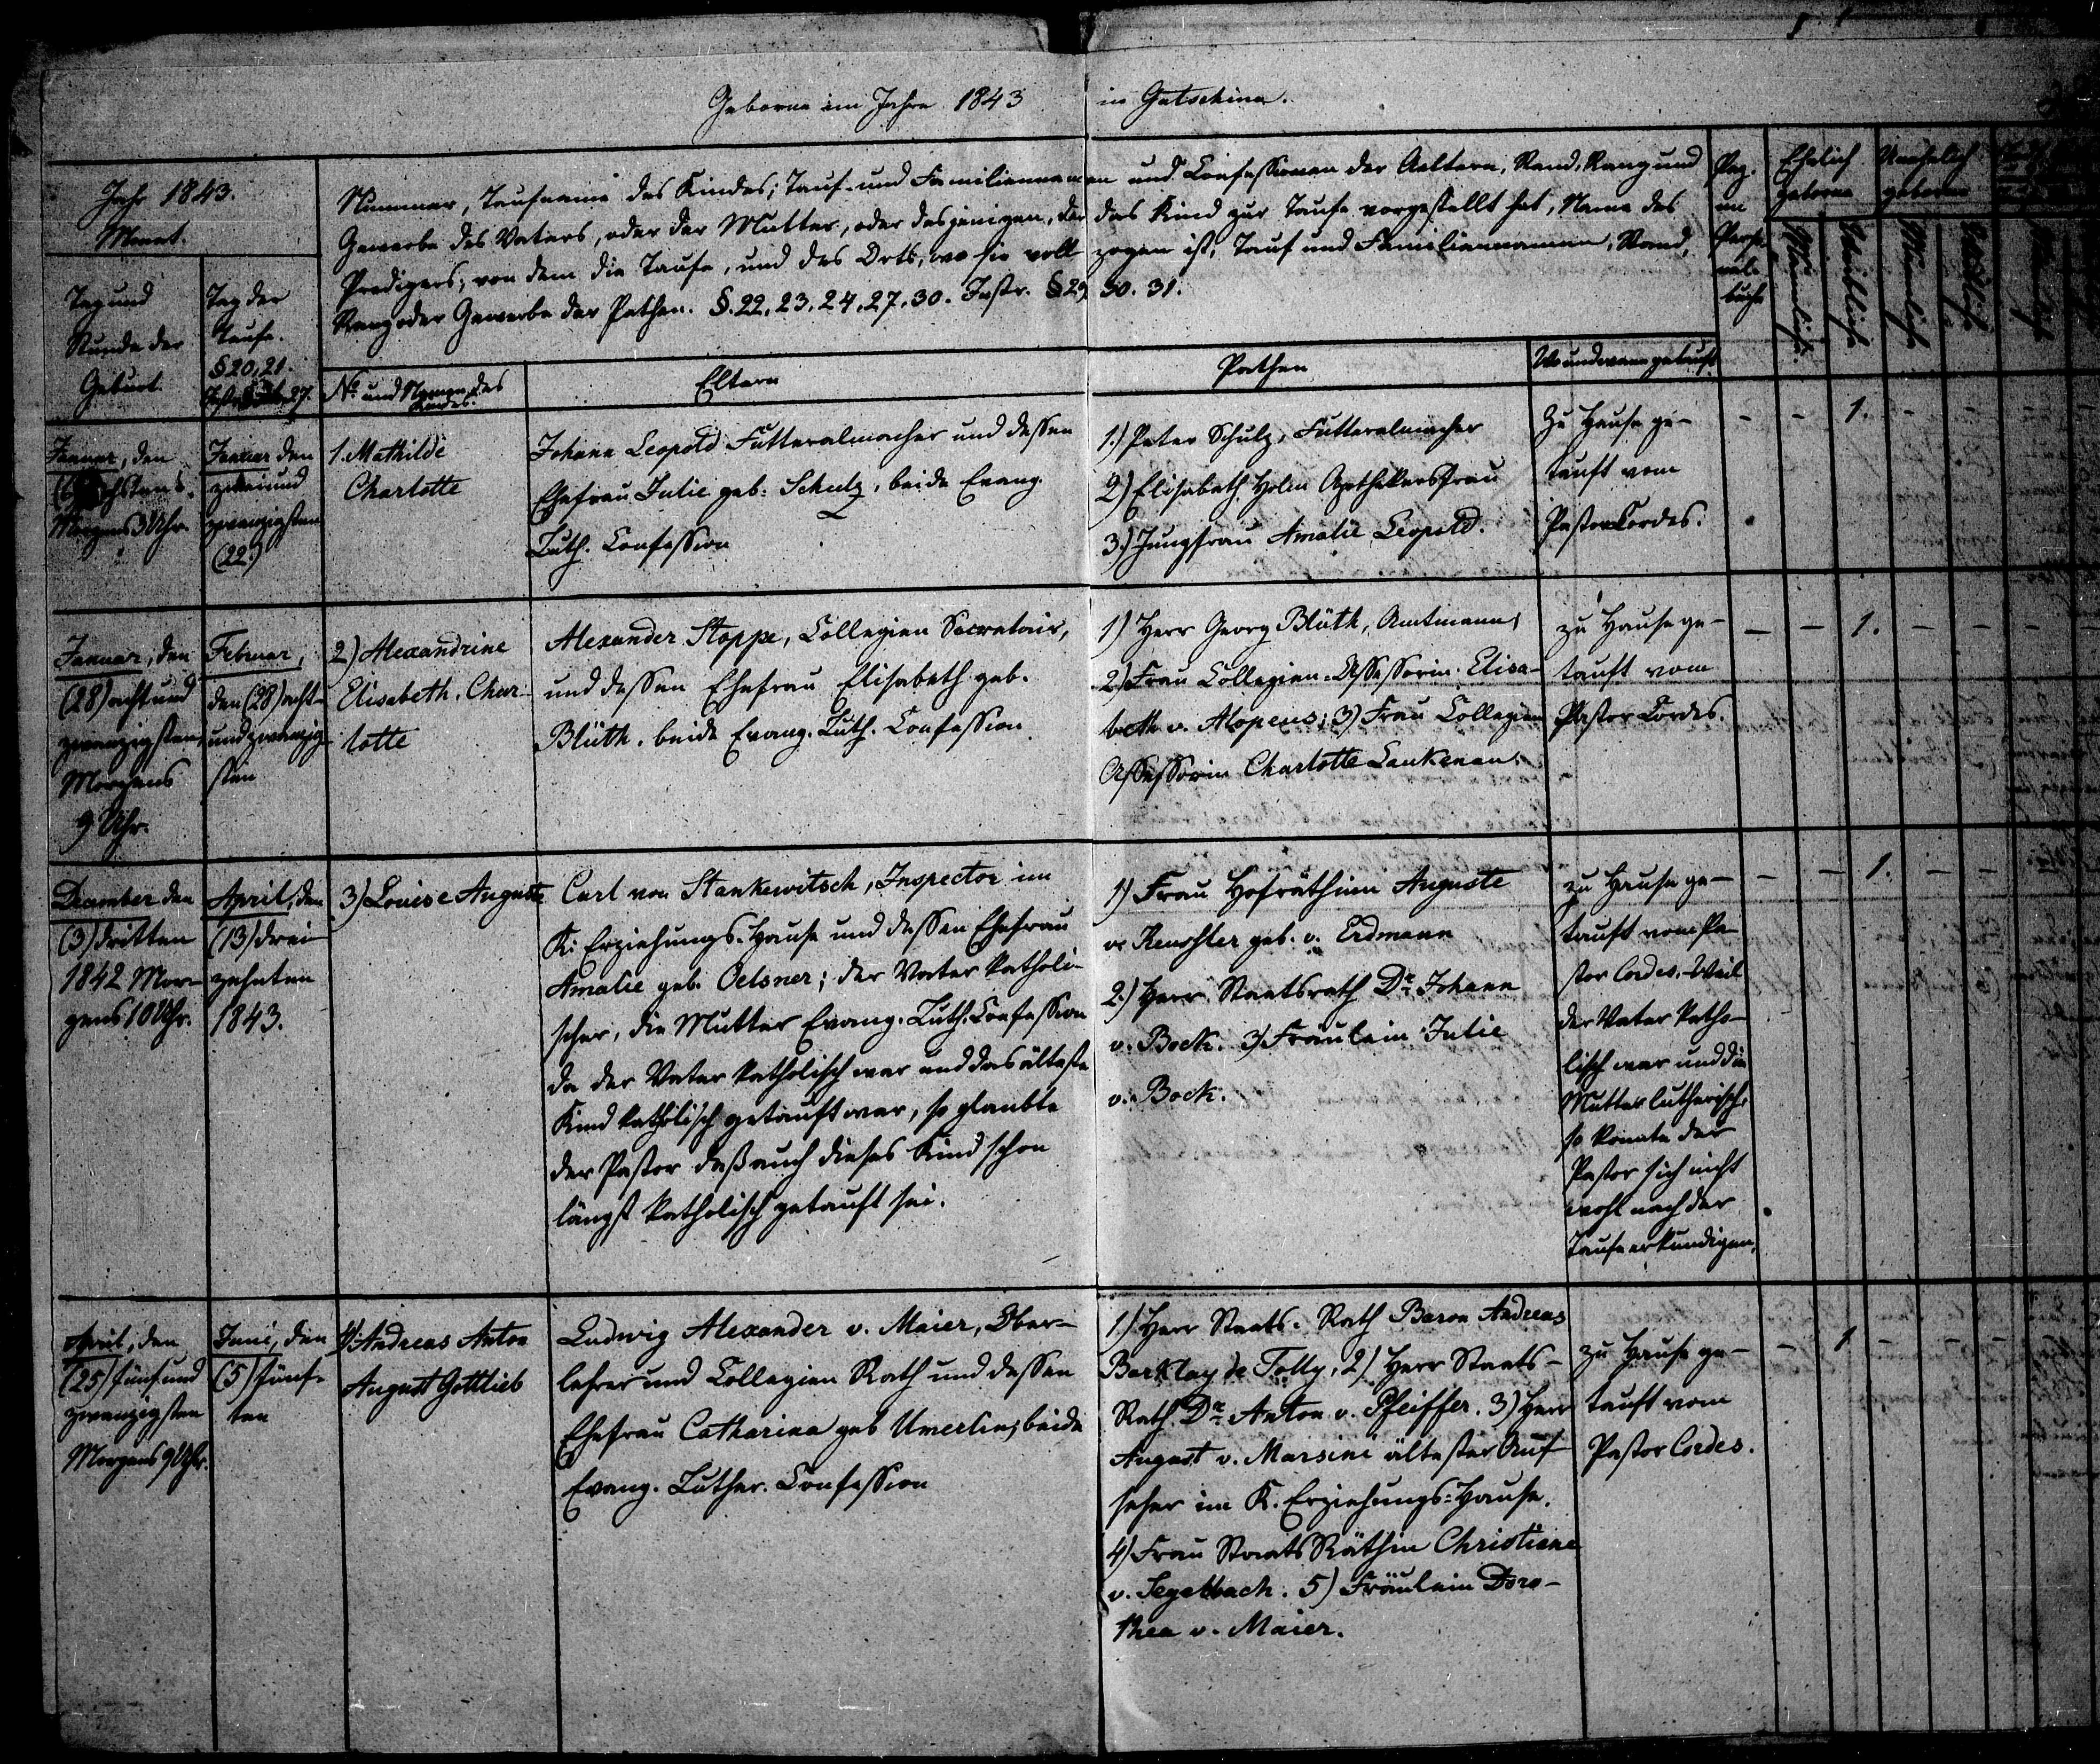 Geborne im Jahre 1843 in Gatschina.
Jahr 1843.
Monat.
Tag und
Stunde der
Geburt
Tag der
Taufe.
§ 20, 21.
27.
Nummer, Taufname des Kindes; Tauf- und Familiennamen und Confessionen der Aeltern, Stand, Rang und
Gewerbe des Vaters, oder der Mutter, oder desjenigen, der das Kind zur Taufe vorgestellt hat, Name des
Predigers, von dem die Taufe, und des Orts, wo sie voll zogen ist, Tauf und Familiennamen, Stand,
Rang oder Gewerbe der Pathen. §. 22, 23, 24, 27, 30. Instr. § 29, 30. 31.
No und Namen des
Kindes.
Eltern
Pathen
Wo und wann getauft
Pag.
im
Perso-
nal-
buche
Ehelich
geborne
Unehelich
geborne
Männlich.
Weiblich.
Männlich
Weiblich
Januar, den
Morgens 3 Uhr.
Januar den
zwei und
zwanzigsten
(22.)
1. Mathilde
Charlotte
Johann Leopold Futteralmacher und dessen
Ehefrau Julie geb: Schulz, beide Evang.
Luth. Confession
1.) Peter Schulz, Futteralmacher
2) Elisabeth Holm Apothekersfrau
3.) Jungfrau Amalie Leopold.
Zu Hause ge-
tauft vom
Pastor Cordes.
- - 1. - -
Januar, den
(28) acht und
zwanzigsten,
Morgens
9 Uhr.
Februar,
den (28) acht-
und zwanzig-
sten
2) Alexandrine
Elisabeth. Char-
lotte
Alexander Stoppe, Collegien Secretair,
und dessen Ehefrau Elisabeth geb.
Blüth. beide Evang. Luth. Confession
1) Herr Georg Blüth, Amtmann,
2) Frau Collegien-Assessorin Elisa-
beth v. Alopeus; 3) Frau Collegien
Assessorin Charlotte Lankenau.
zu Hause ge-
tauft vom
Pastor Cordes.
- - 1. - - -
December den
(3) dritten
1842 Mor-
gens 10 Uhr.
April, den
(13) drei-
zehnten
1843.
3) Louise Auguste
Carl von Stankewitsch, Inspector im
K: Erziehungs-Hause und dessen Ehefrau
Amalie geb. Oelsner; der Vater katholi-
scher, die Mutter Evang. Luth. Confession
da der Vater katholisch war und das älteste
Kind katholisch getauft war, so glaubte
der Pastor daß auch dieses Kind schon
längst katholisch getauft sei.
1) Frau Hofräthinn Auguste
v. geb. v. Erdmann
2.) Herr Staatsrath Dr. Johann
v. Bock. 3) Fräulein Julie
v. Bock.
zu Hause ge-
tauft vom Pa-
stor Cordes. Weil
der Vater katho-
lisch war und die
Mutter lutherisch,
so konnte der
Pastor sich nicht
wohl nach der
Taufe erkundigen.
- - 1. - -
April, den
(25) fünf und
zwanzigsten
Morgens 9 Uhr.
Juni, den
(5) fünf-
ten
4) Andreas Anton
August Gottlieb
Ludwig Alexander v. Maier, Ober-
lehrer und Collegien Rath und dessen
Ehefrau Catharina geb Umerlin, beide
Evang. Luther. Confession
1) Herr Staats-Rath Baron Andreas
Barklay de Tolly, 2) Herr Staats-
Rath Dr. Anton v. Pfeiffer. 3) Herr
August v. Marsini ältester Auf
seher im K. Erziehungs-Hause.
4) Frau Staats Räthin Christiane
v. Segelbach. 5) Fräulein Doro-
thea v. Maier.
zu Hause ge-
tauft vom
Pastor Cordes.
- 1 - - -